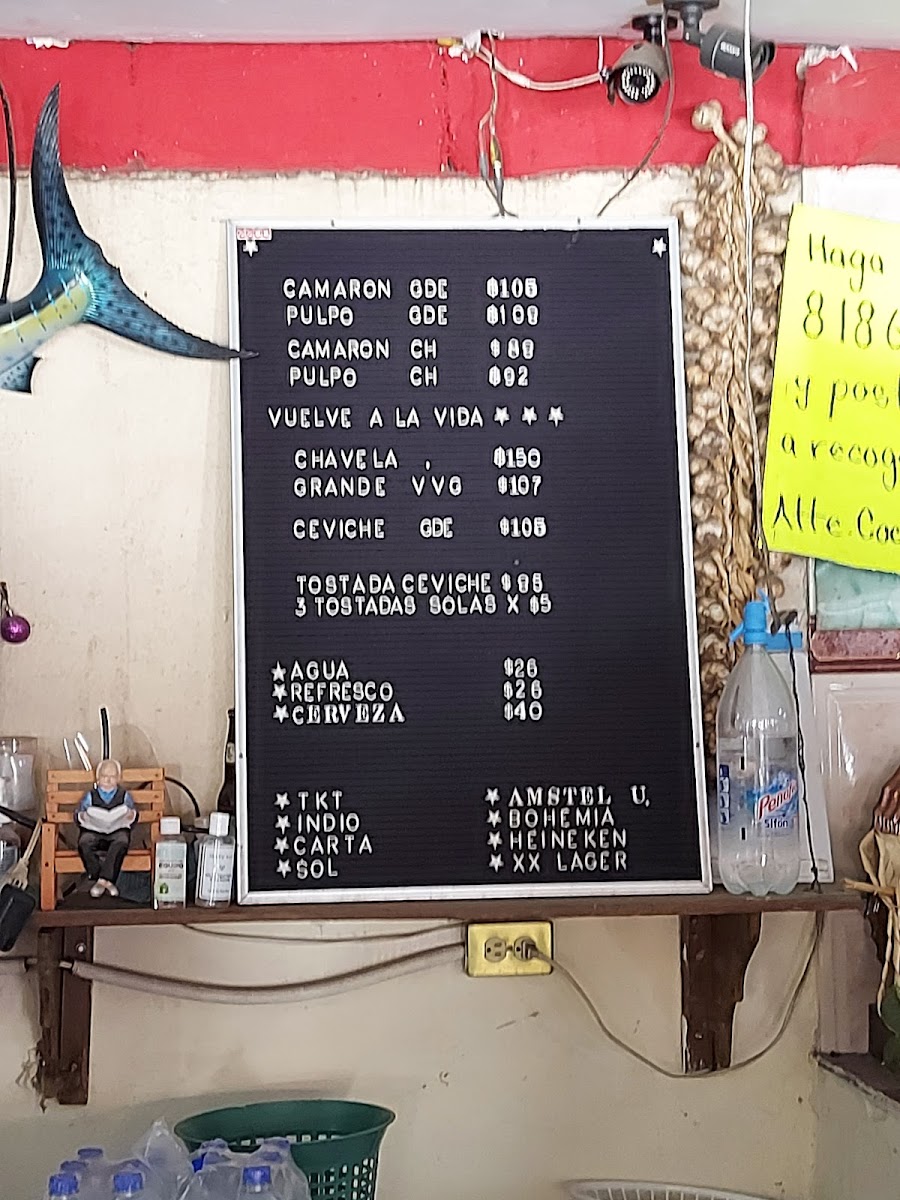 CAMARON GDE $105
PULPO GDE $109
CAMARON CH $89
PULPO CH $92
VUELVE A LA VIDA
CHAVELA . $150
GRANDE VVG $107
CEVICHE GDE $105
TOSTADA CEVICHE $85
3 TOSTADAS SOLAS X $5
AGUA $26
REFRESCO $26
CERVEZA $40
TKT
INDIO
CARTA
SOL
AMSTEL U.
BOHEMIA
HEINEKEN
XX LAGER
Haga
8186
y post
a recog
Alte. Coc
Peñafiel
Sifón